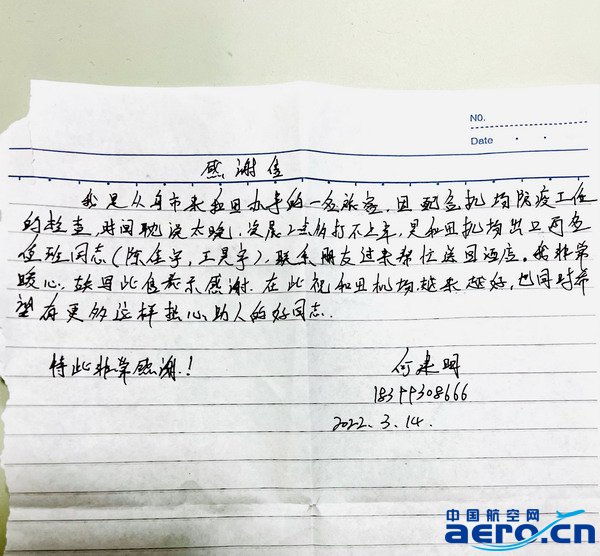 NO.
Date
感谢信
我是从 市来和田办事的一名旅客,因配合机场防疫工作
的检查,时间耽误太晚,凌晨2点仍打不上车,是和田机场出卫两名
值班同志(陈 宇,王昊宇),联系朋友过来帮忙送回酒店。我非常
暖心,故因此 表示感谢.在此祝和田机场越来越好,也同时希
望有更多这样热心助人的好同志.
特此非常感谢.!
何建明
18399308666
2022.3.14.
中国航空网
aero.cn